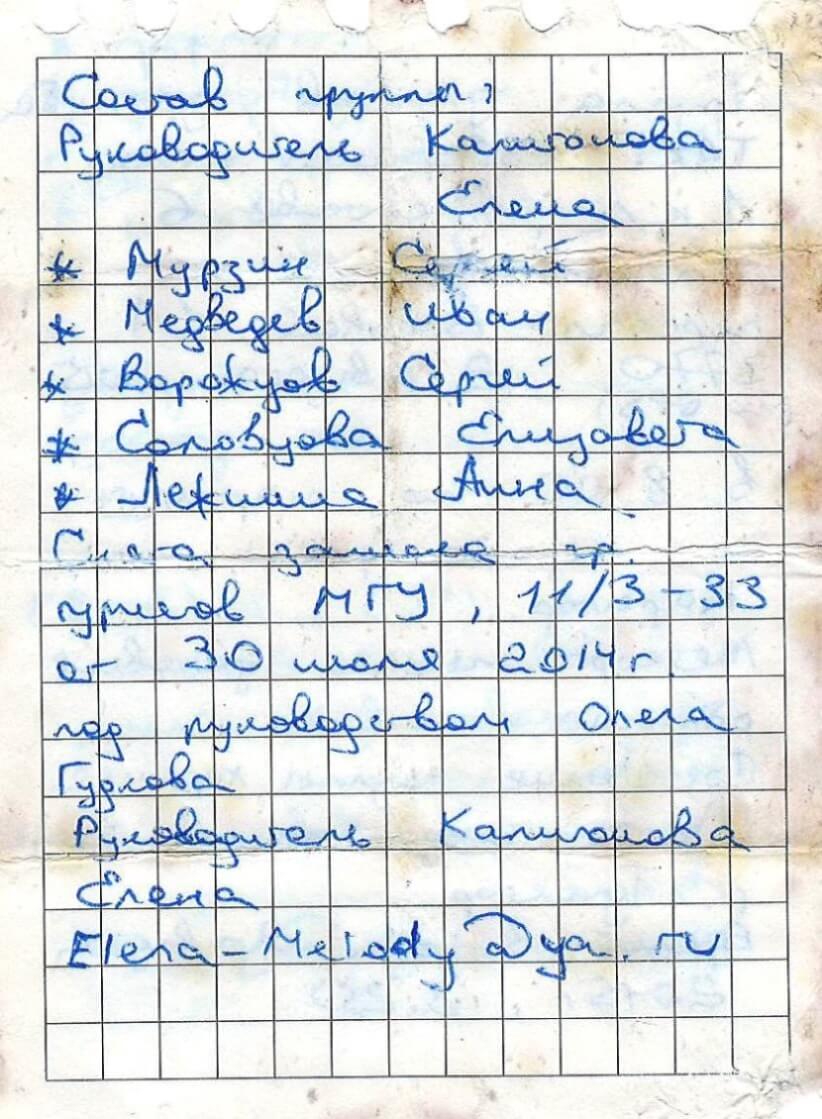 Состав группы:
Руководитель Капитонова
Елена
* Мурзин Сергей
* Медведев Иван
* Ворожцов Сергей
* Соловцова Елизавета
* Лежнина Анна
Снята записка гр.
туристов МГУ, 11/3-33
от 30 июля 2014г.
под руководством Олега
Гудкова
Руководитель Капитонова
Елена
Elena-Melody@ya.ru